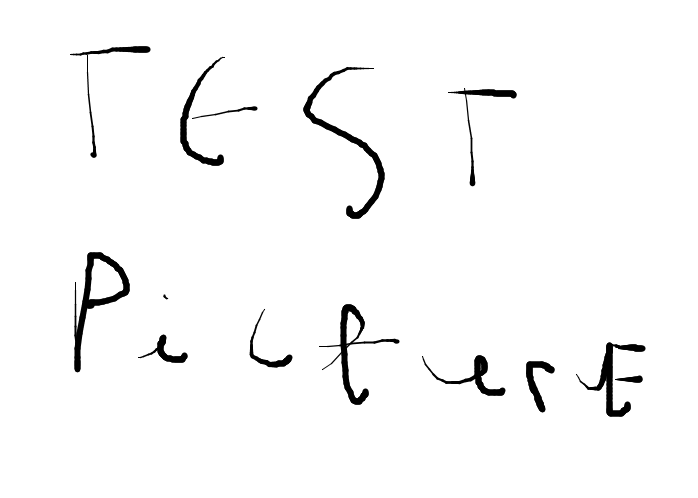 TEST
PicturE